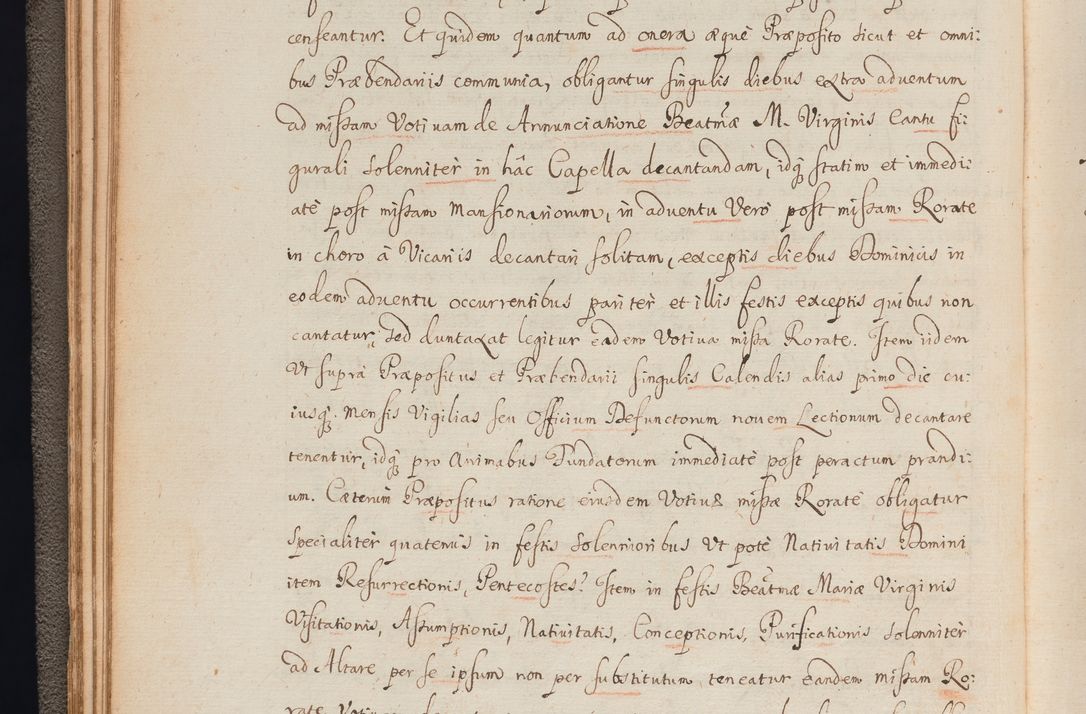 censeantur. Et quidem quantum ad onera æquè Præposito sicut et omni:
bus Præbendariis communia, obligantur singulis diebus extra adventum
ad missam Votivam de Annunciatione Beatmæ M. Virginis Cantu fi:
gurali solenniter in hâc Capella decantandam, idq; statim et immedi:
atè post missam Mansionariorum, in adventu Verò post missam Rorate
in choro à Vicariis decantari solitam, exceptis diebus Dominicis in
eodem adventu occurrentibus pariter et illis festis exceptis quibus non
cantatur, sed duntaxat legitur eadem Votiva missa Rorate. Item iidem
Vt suprà Præpositus et Præbendarii singulis Calendis alias primo die cu:
iusq; Mensis Vigilias seu Officium Defunctorum novem Lectionum decantare
tenentur, idq; pro Animabus Fundatorum immediatè post peractum prandi:
um. Cæterum Præpositus ratione eiusdem Votivæ missæ Rorate obligatur
specialiter quatenus in festis solennioribus Vt potè Nativitatis Domini
item Resurrectionis, Pentecostes? Item in festis Beatmæ Mariæ Virginis
Visitationis, Assumptionis, Nativitatis, Conceptionis, Purificationis solenniter
ad Altare per se ipsum non per substitutum teneatur eandem missam Ro: